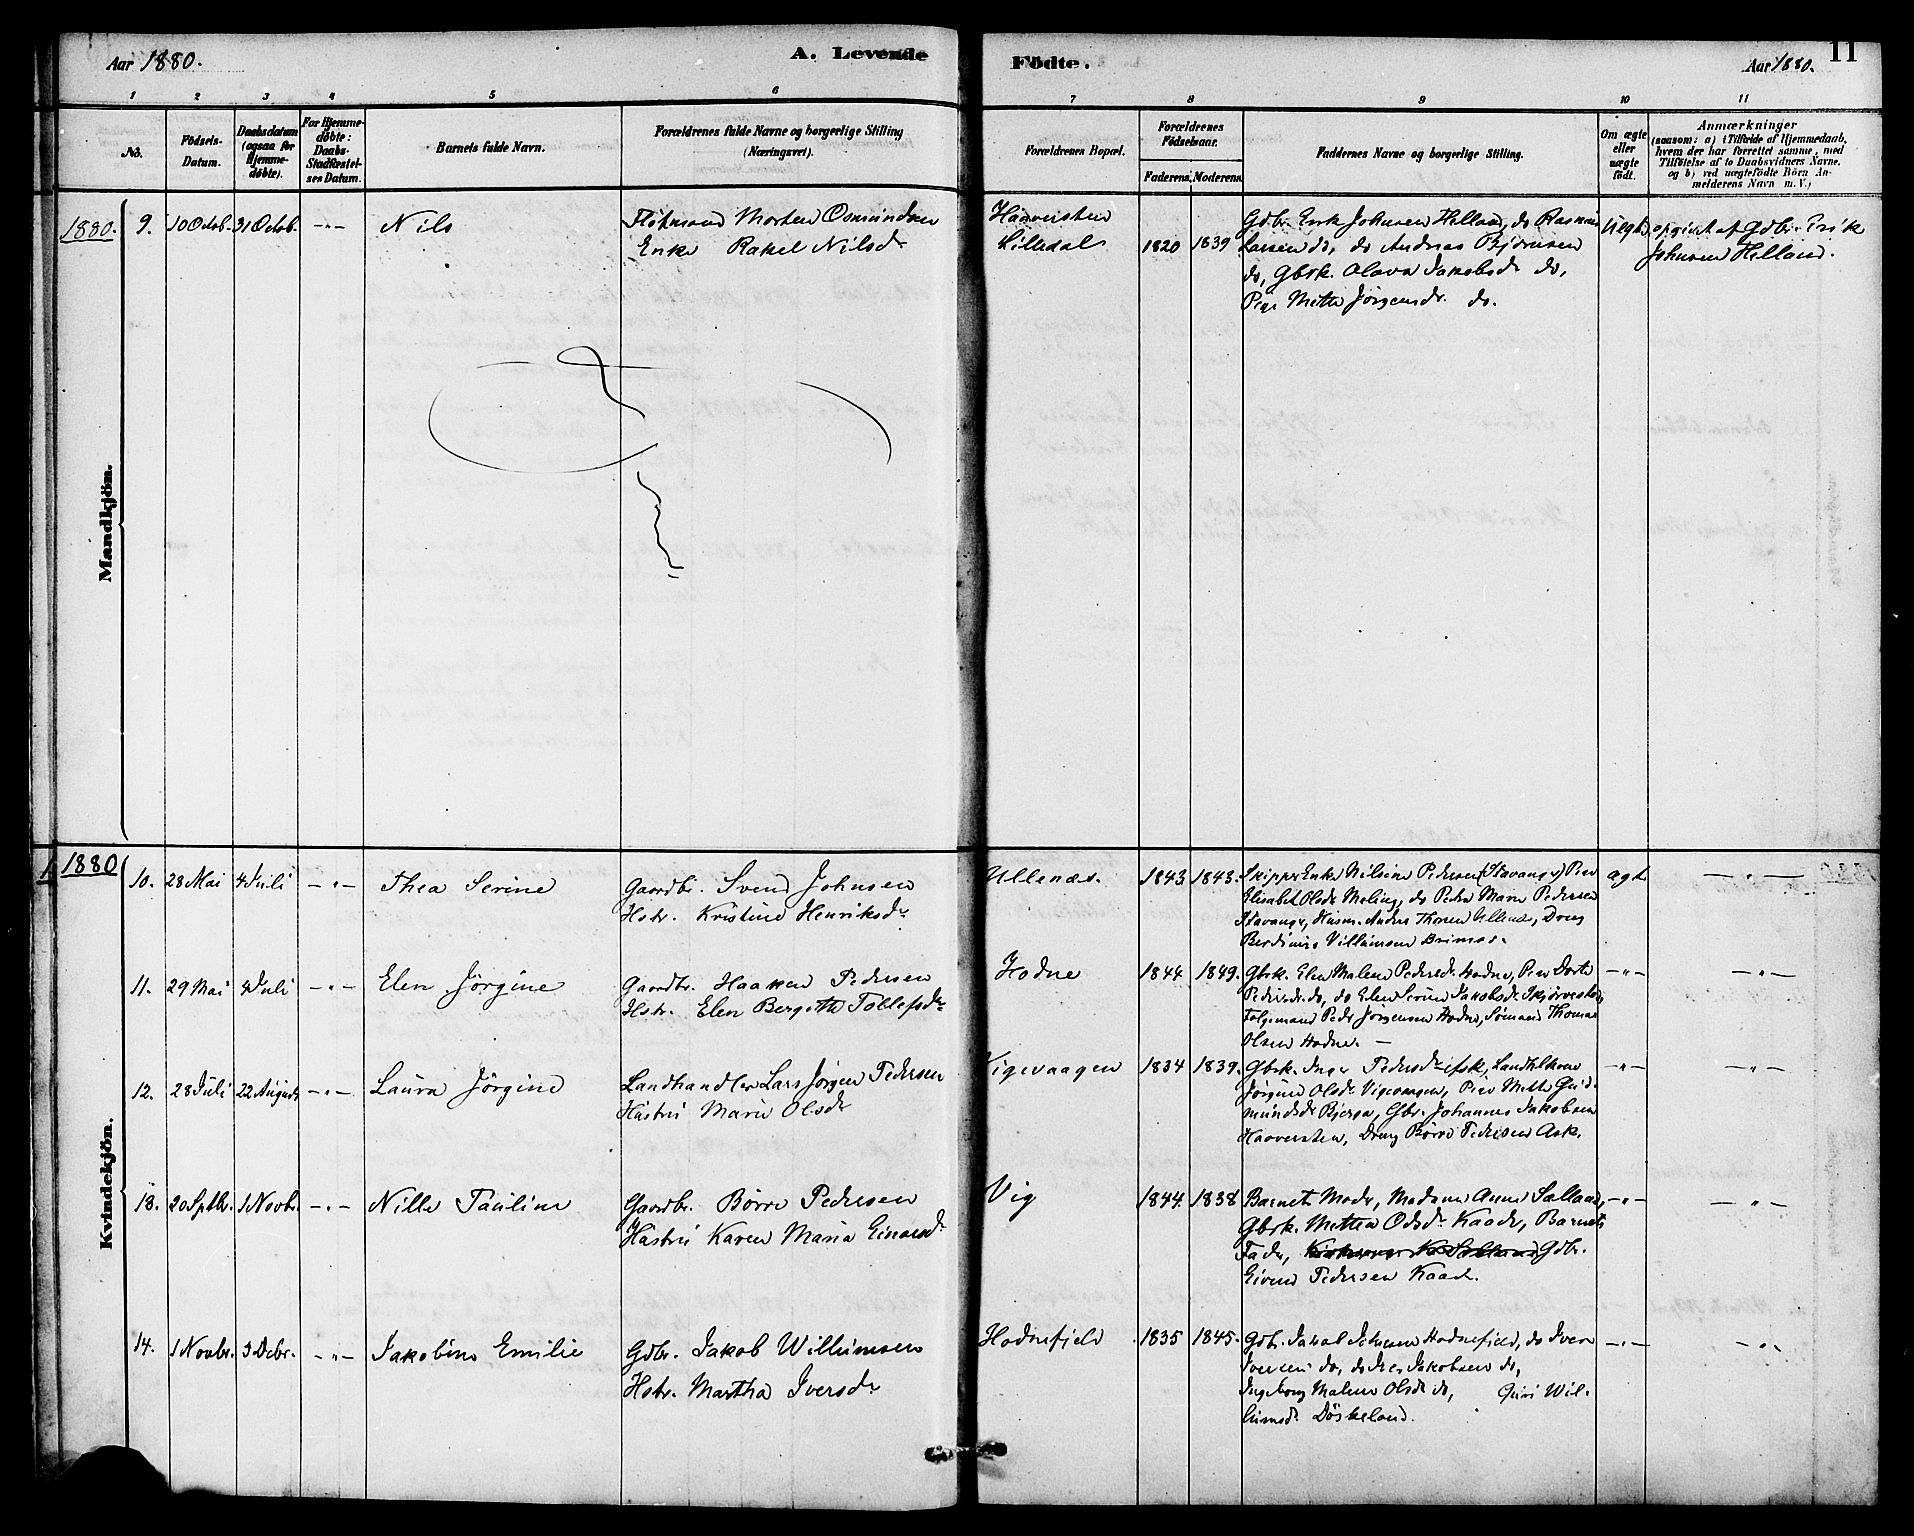 Aar 1880.
A. Levende
Födte.
Aar 1880.
11
1 2 3 4 5 6 7 8 9 10 11
No.
Födsels-Datum.
Daabsdatum (ogsaa for Hjemme-döbte).
For Hjemme-döbte: Daabs-Stadfæstel-ses Datum.
Barnets fulde Navn.
Forældrenes fulde Navne og borgerlige Stilling (Næringsvei).
Forældrenes Bopæl.
Forældrenes Födselsaar.
Faderens. Moderens.
Faddernes Navne og borgerlige Stilling.
Om ægte eller uægte födt.
Anmærkninger
(saasom: a) i Tilfælde af Hjemmedaab,
hvem der har forrettet samme, med
Tilföielse af to Daabsvidners Navne.
og b) ved uægtefödte Börn An-
melderens Navn m. V.)
Mandkjön.
1880. 9. 10 Octob. 31 Octob. -"- Nils
Morten Osmundsen
Enke Rakel Nilsdr
Haaversten
Lilledal 1820 1839
Gdbr. Erik Johnsen Helland, do Rasmus
Larsen do, do Andreas Bjørnsen
do, Gbrk. Olava Jakobsdr do,
Pige Mette Jörgensdr. do.
Uægte opgivet af Gdbr. Erik
Johnsen Helland.
Kvindekjön.
1880
10. 28 Mai 4 Juli -"- Thea Serine
Gaardbr. Svend Johnsen
Hstr. Kristine Henriksdr
Ullenæs. 1843 1843.
Skipper Enke Nilsine Pedersen (Stavanger) Pige
Elisabet Olsdr Meling, do Petra Marie Pedersen
Stavanger, Husm. Anders Thorsen Ullenæs, Dreng
Berdinius Villumsen Brimse.
ægt. -"-
11. 29 Mai 4 Juli -"- Elen Jørgine
Gaardbr. Haaken Pedersen
Hstr. Elen Bergitte Tollefsdr
Hodne 1844 1849.
Gbrk. Elen Malene Pedersdr Hodne, Pige Dorte
Pedersdr do, do Elen Serine Jakobsdr
Følgemand Peder Jørgensen Hodne, Sømand Thomas
Olsen Hodne. -
-"- -"-
12. 28 Juli 22 August -"- Laura Jørgine
Landhandler Lars Jørgen Pedersen
Hustru Marie Olsdr
Vigevaagen 1834 1839.
Gbrk. Inger Pedersdr Ask, Landhlkone
Jørgine Olsdr Vigevaagen, Pige Mette Gud-
mundsdr Bjerga, Gbr. Johannes Jakobsen
Haaversten, Dreng Børre Pedersen Ask.
-"- -"-
13. 20 Septbr. 1 Novbr. -"- Nille Pauline
Gaardbr. Børre Pedersen
Hustru Karen Maria Einarsdr
Vig 1844. 1838
Barnets Moder, Madame Anne Salland,
Gbrk. Mettea Olsdr Kaade, Barnets
Fader, Gdbr.
Eivind Pedersen Kaade.
-"- -"-
14. 1 Novbr. 3 Debr. -"- Jakobine Emilie
Gdbr. Jakob Willumsen
Hstr. Martha Iversdr
Hodnefjeld 1835 1845.
Gdbr. Jakob Johnsen Hodnefjeld, do Iver
Iversen do, do Iver Jakobsen do,
Ingeborg Malene Olsdr do, Guri Wil-
lumsdr. Døskeland.
-"- -"-